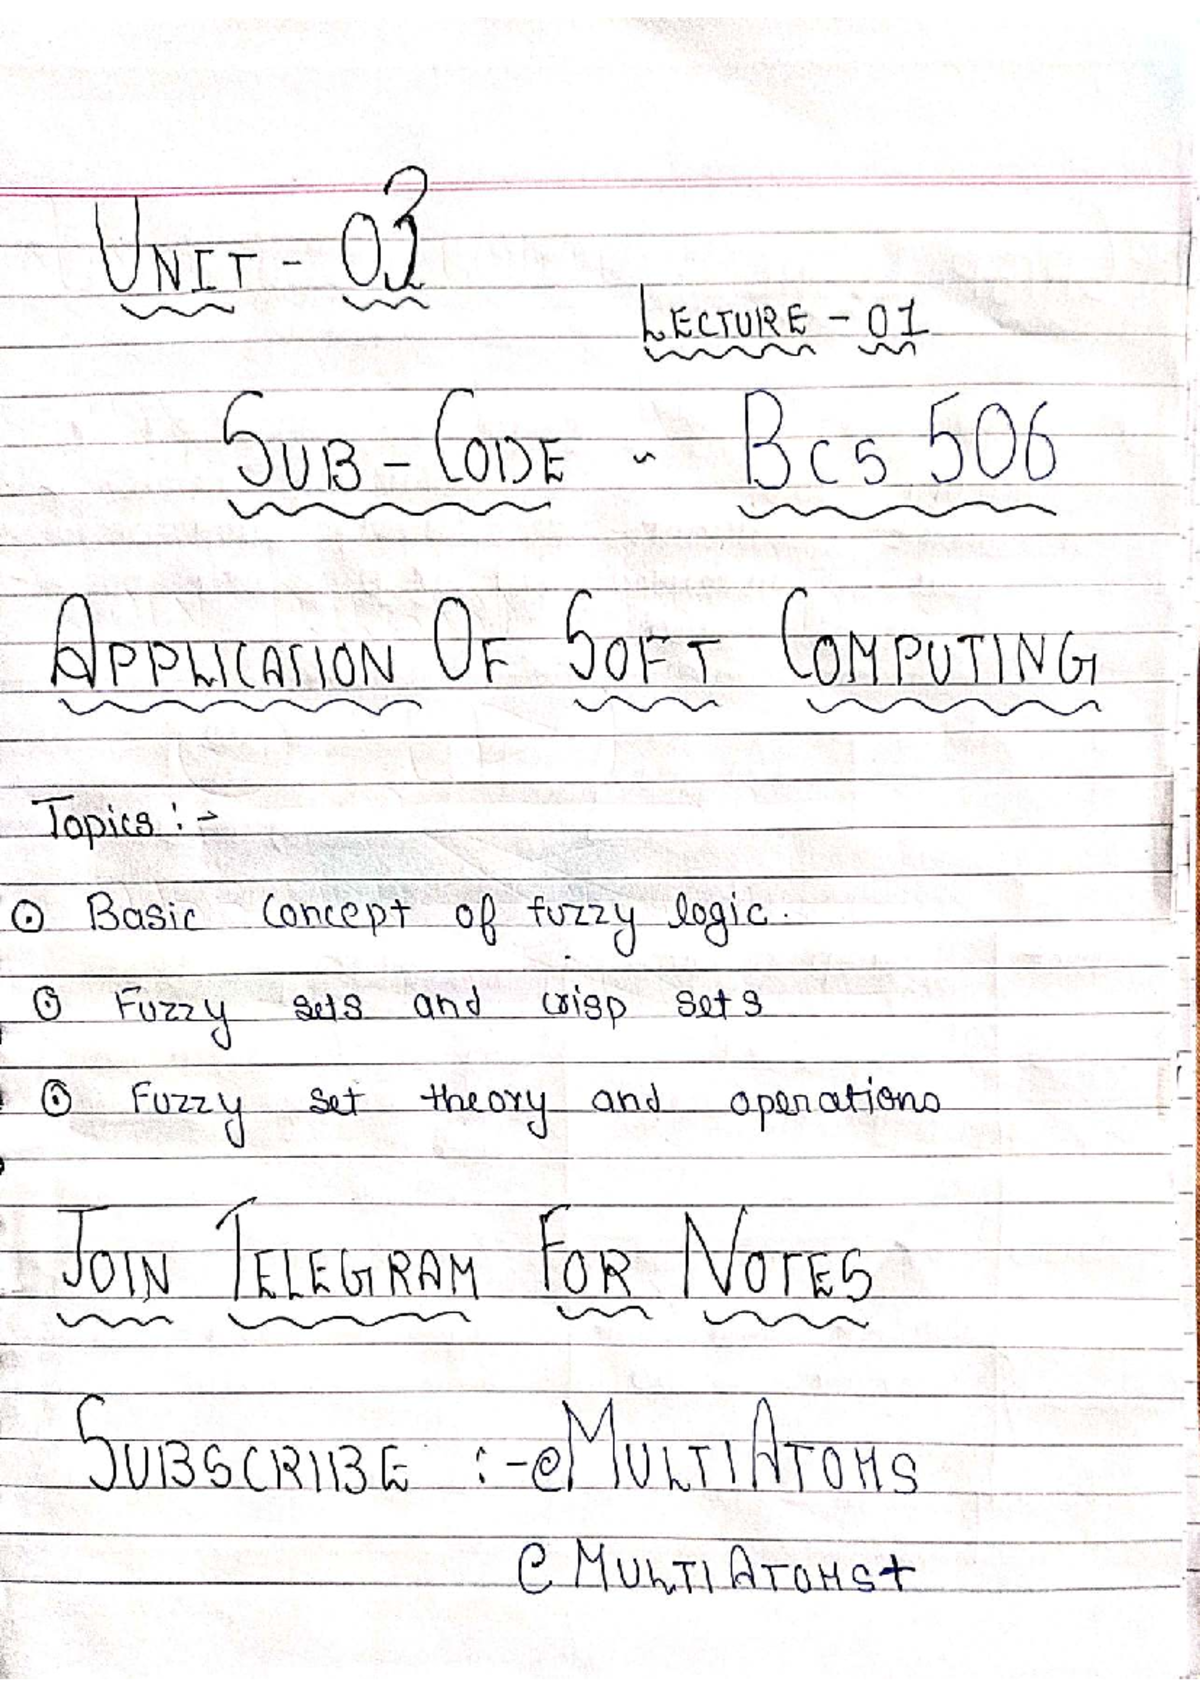 UNIT - 03
LECTURE - 01
SUB - CODE - BCS 506
APPLICATION OF SOFT COMPUTING
Topics :-
⊙ Basic Concept of fuzzy logic.
⊙ Fuzzy sets and crisp sets
⊙ Fuzzy set theory and operations
JOIN TELEGRAM FOR NOTES
SUBSCRIBE :- @MULTIATOMS
@MULTIATOMS+